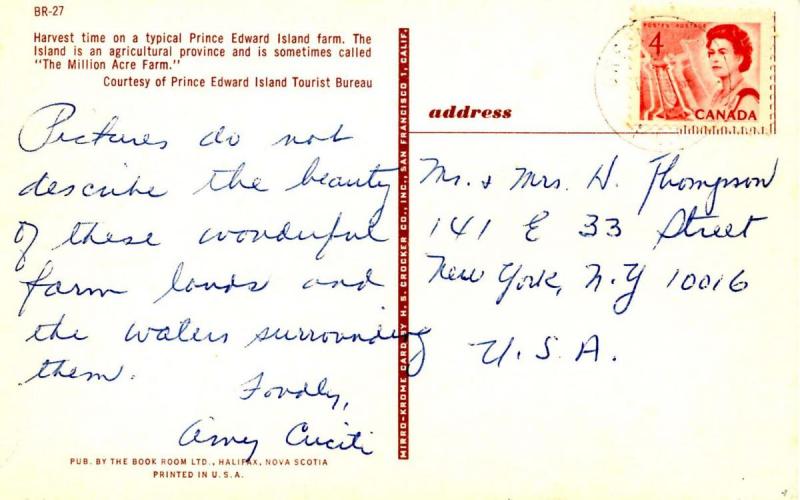 BR-27
Harvest time on a typical Prince Edward Island farm. The
Island is an agricultural province and is sometimes called
"The Million Acre Farm."
Courtesy of Prince Edward Island Tourist Bureau
Pictures do not
describe the beauty
of these wonderful
farm lands and
the waters surrounding
them.
Fondly,
Amy
PUB. BY THE BOOK ROOM LTD., HALIFAX, NOVA SCOTIA
PRINTED IN U.S.A.
MIRRO-KROME CARD BY H. S. CROCKER CO., INC., SAN FRANCISCO 1, CALIF.
POSTES POSTAGE
4
CANADA
address
Mr. & Mrs. H. Thompson
141 E 33 Street
New York, N.Y 10016
U.S.A.